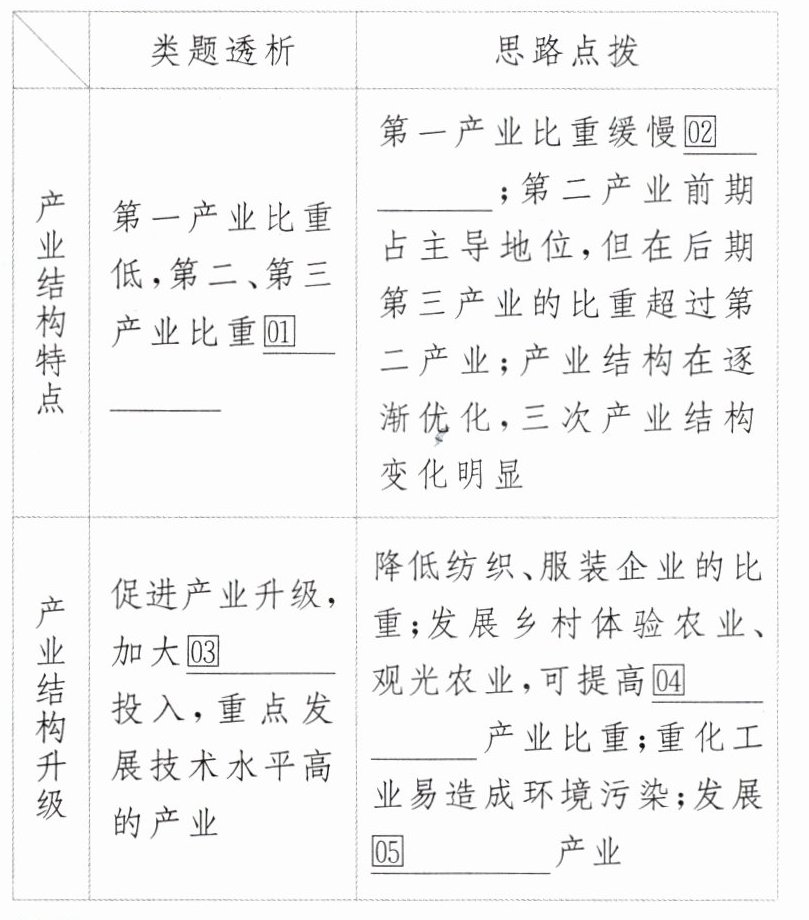 类题透析
思路点拨
产业结构特点
第一产业比重
低,第二、第三
产业比重01____
________
第一产业比重缓慢02____
________;第二产业前期
占主导地位,但在后期
第三产业的比重超过第
二产业;产业结构在逐
渐优化,三次产业结构
变化明显
产业结构升级
促进产业升级,
加大03________
投入,重点发
展技术水平高
的产业
降低纺织、服装企业的比
重;发展乡村体验农业、
观光农业,可提高04______
________产业比重;重化工
业易造成环境污染;发展
05__________产业